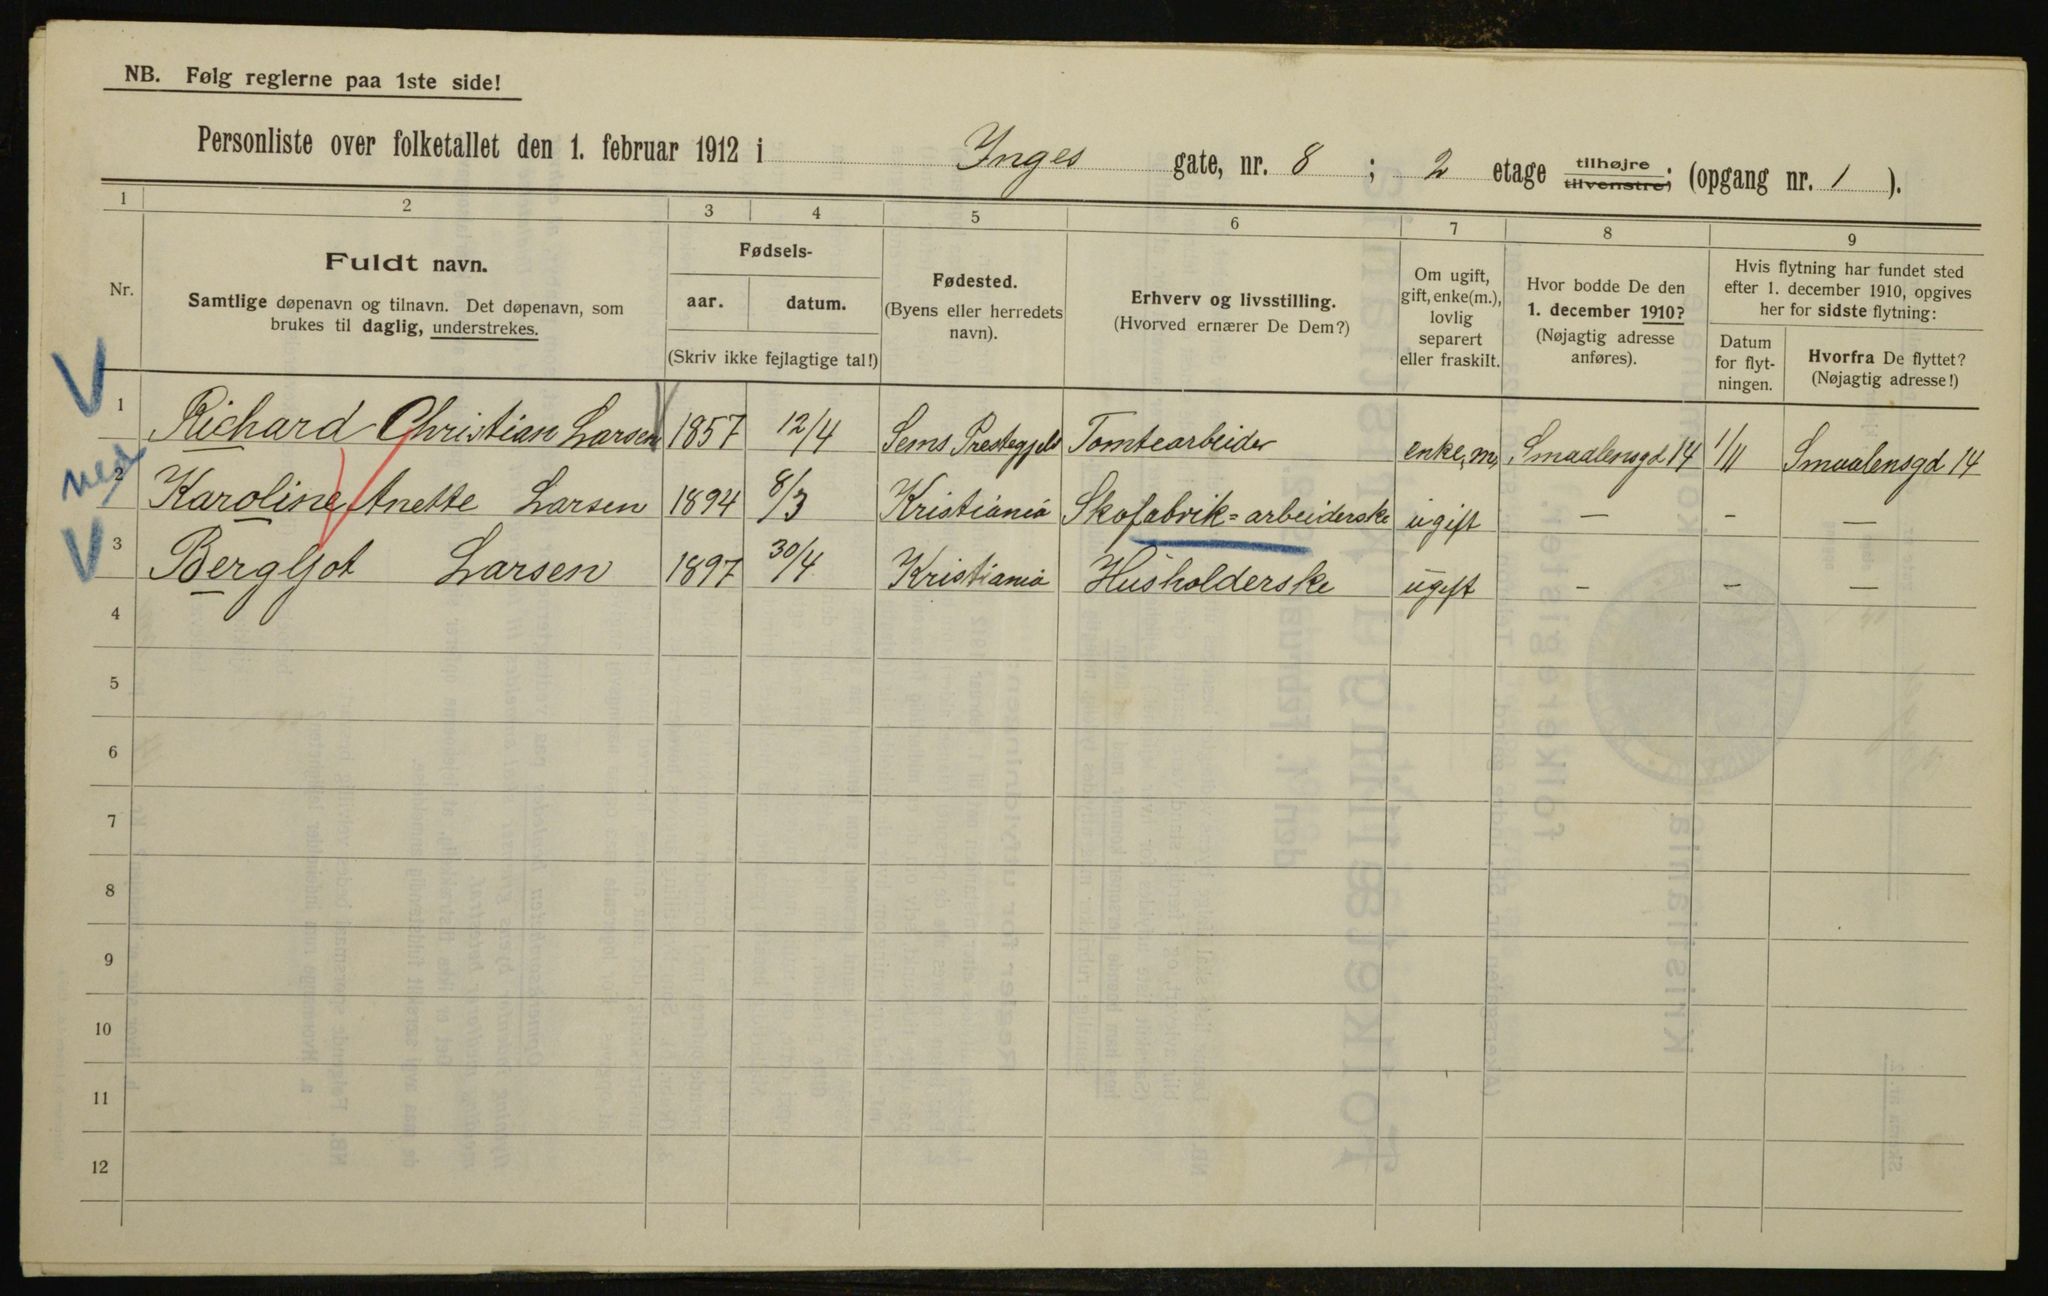 NB. Følg reglerne paa 1ste side!
Personliste over folketallet den 1. februar 1912 i Inges gate, nr. 8 ; 2 etage tilhøjre tilvenstre; (opgang nr. 1 ).
1 2 3 4 5 6 7 8 9
Nr.
Fuldt navn.
Samtlige døpenavn og tilnavn. Det døpenavn, som
brukes til daglig, understrekes.
Fødsels-
aar. datum.
(Skriv ikke fejlagtige tal!)
Fødested.
(Byens eller herredets
navn).
Erhverv og livsstilling.
(Hvorved ernærer De Dem?)
Om ugift,
gift, enke(m.),
lovlig
separert
eller fraskilt.
Hvor bodde De den
1. december 1910?
(Nøjagtig adresse
anføres).
Hvis flytning har fundet sted
efter 1. december 1910, opgives
her for sidste flytning:
Datum
for flyt-
ningen.
Hvorfra De flyttet?
(Nøjagtig adresse!)
V
1 Richard Christian Larsen 1857 12/4 Sems Prestegjeld Tomtearbeider enke,m, Smaalensgd 14 1/11 Smaalensgd 14
ned
2 Karoline Anette Larsen 1894 8/3 Kristiania Skofabrik=arbeiderske ugift — — —
V
3 Bergljot Larsen 1897 30/4 Kristiania Husholderske ugift — — —
4
5
6
7
8
9
10
11
12